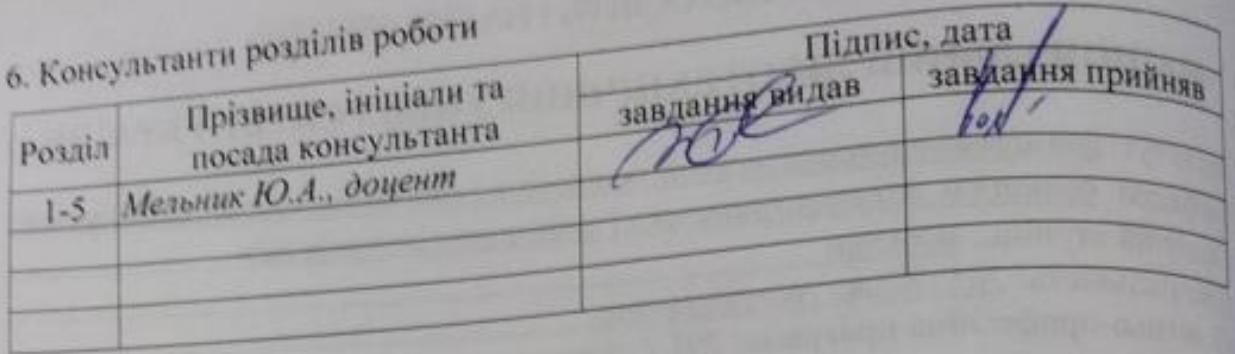 6. Консультанти розділів роботи
Розділ
Прізвище, ініціали та
посада консультанта
Підпис, дата
завдання видав
завдання прийняв
1-5
Мельник Ю.А., доцент